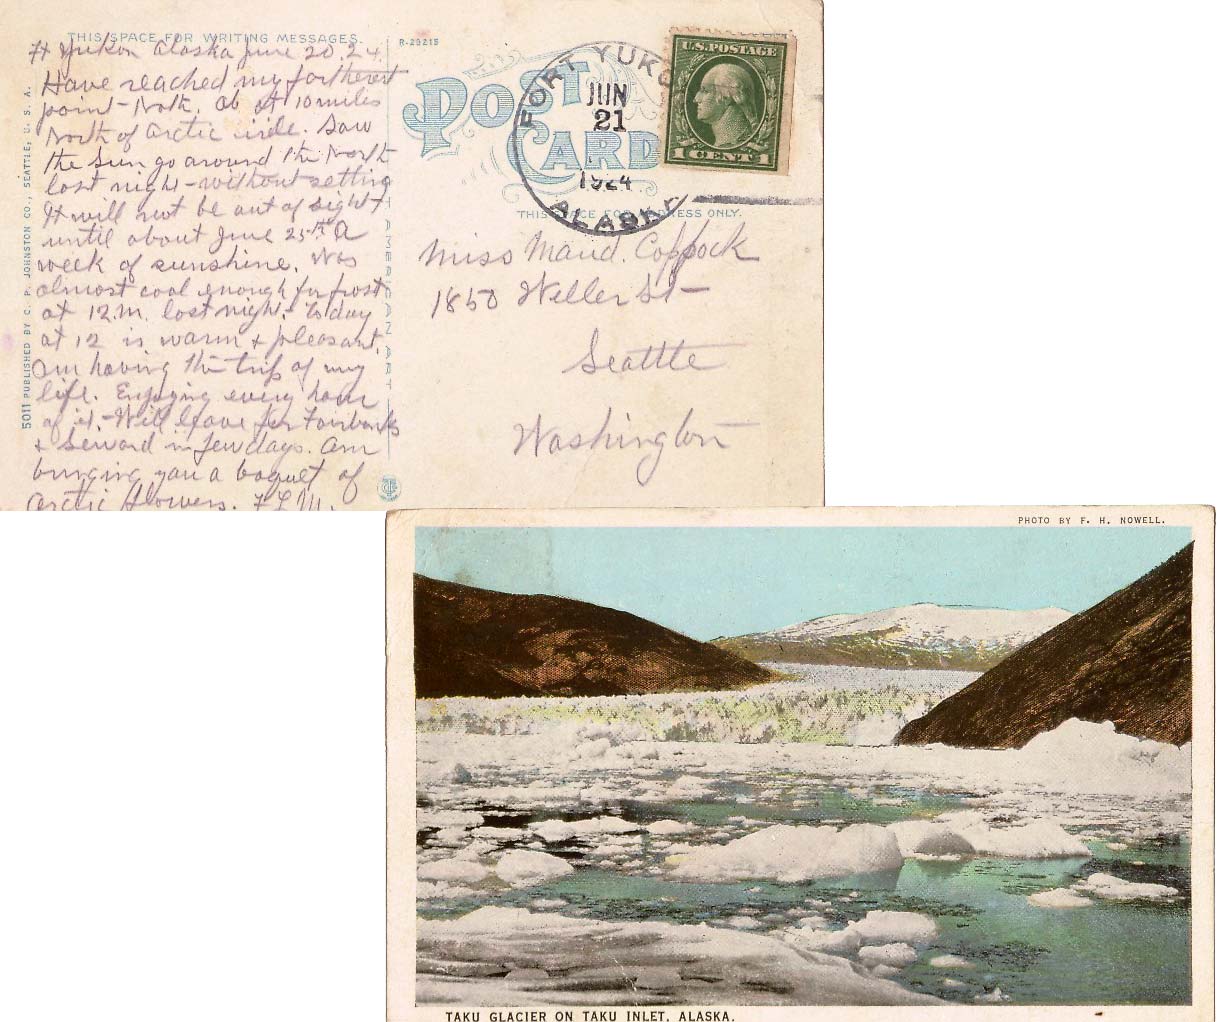 THIS SPACE FOR WRITING MESSAGES.
Ft Yukon Alaska June 20. 24.
Have reached my fartherest
point - North. ab at 10 miles
North of Arctic circle. Saw
the sun go around the North
last night - without setting
It will not be out of sight
until about June 25th A
week of sunshine. Was
almost cool enough for frost
at 12.M. last night. - To day
at 12 is warm + pleasant.
am having the trip of my
life. Enjoying every hour
of it. - Will leave for Fairbanks
+ Seward in few days. am
bringing you a boquet of
Arctic flowers. F L M.
5011 PUBLISHED BY C. P. JOHNSTON CO., SEATTLE, U. S. A.
AMERICAN ART
R-29215
POST CARD
FORT YUKO
JUN
21
1924
ALASKA
U.S. POSTAGE
1 CENT 1
THIS SPACE FOR ADDRESS ONLY.
Miss Maud. Coppock
1850 Weller St -
Seattle
Washington
PHOTO BY F. H. NOWELL.
TAKU GLACIER ON TAKU INLET, ALASKA.